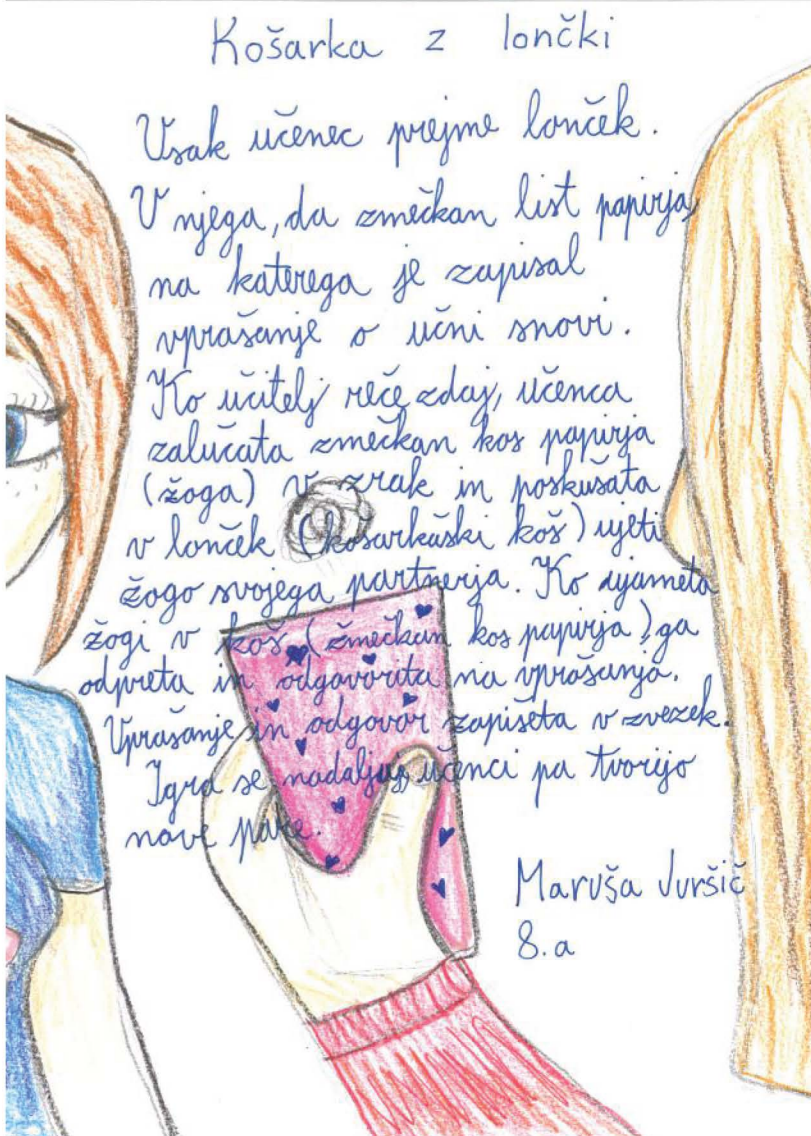 Košarka z lončki
Vsak učenec prejme lonček.
V njega, da zmečkan list papirja,
na katerega je zapisal
vprašanje o učni snovi.
Ko učitelj reče zdaj, učenca
zalučata zmečkan kos papirja
(žoga) v zrak in poskušata
v lonček (košarkaški koš) ujeti
žogo svojega partnerja. Ko ujameta
žogi v koš (zmečkan kos papirja), ga
odpreta in odgovorita na vprašanja.
Vprašanje in odgovor zapišeta v zvezek.
Igra se nadaljuje, učenci pa tvorijo
nove pare.
Maruša Juršič
8.a